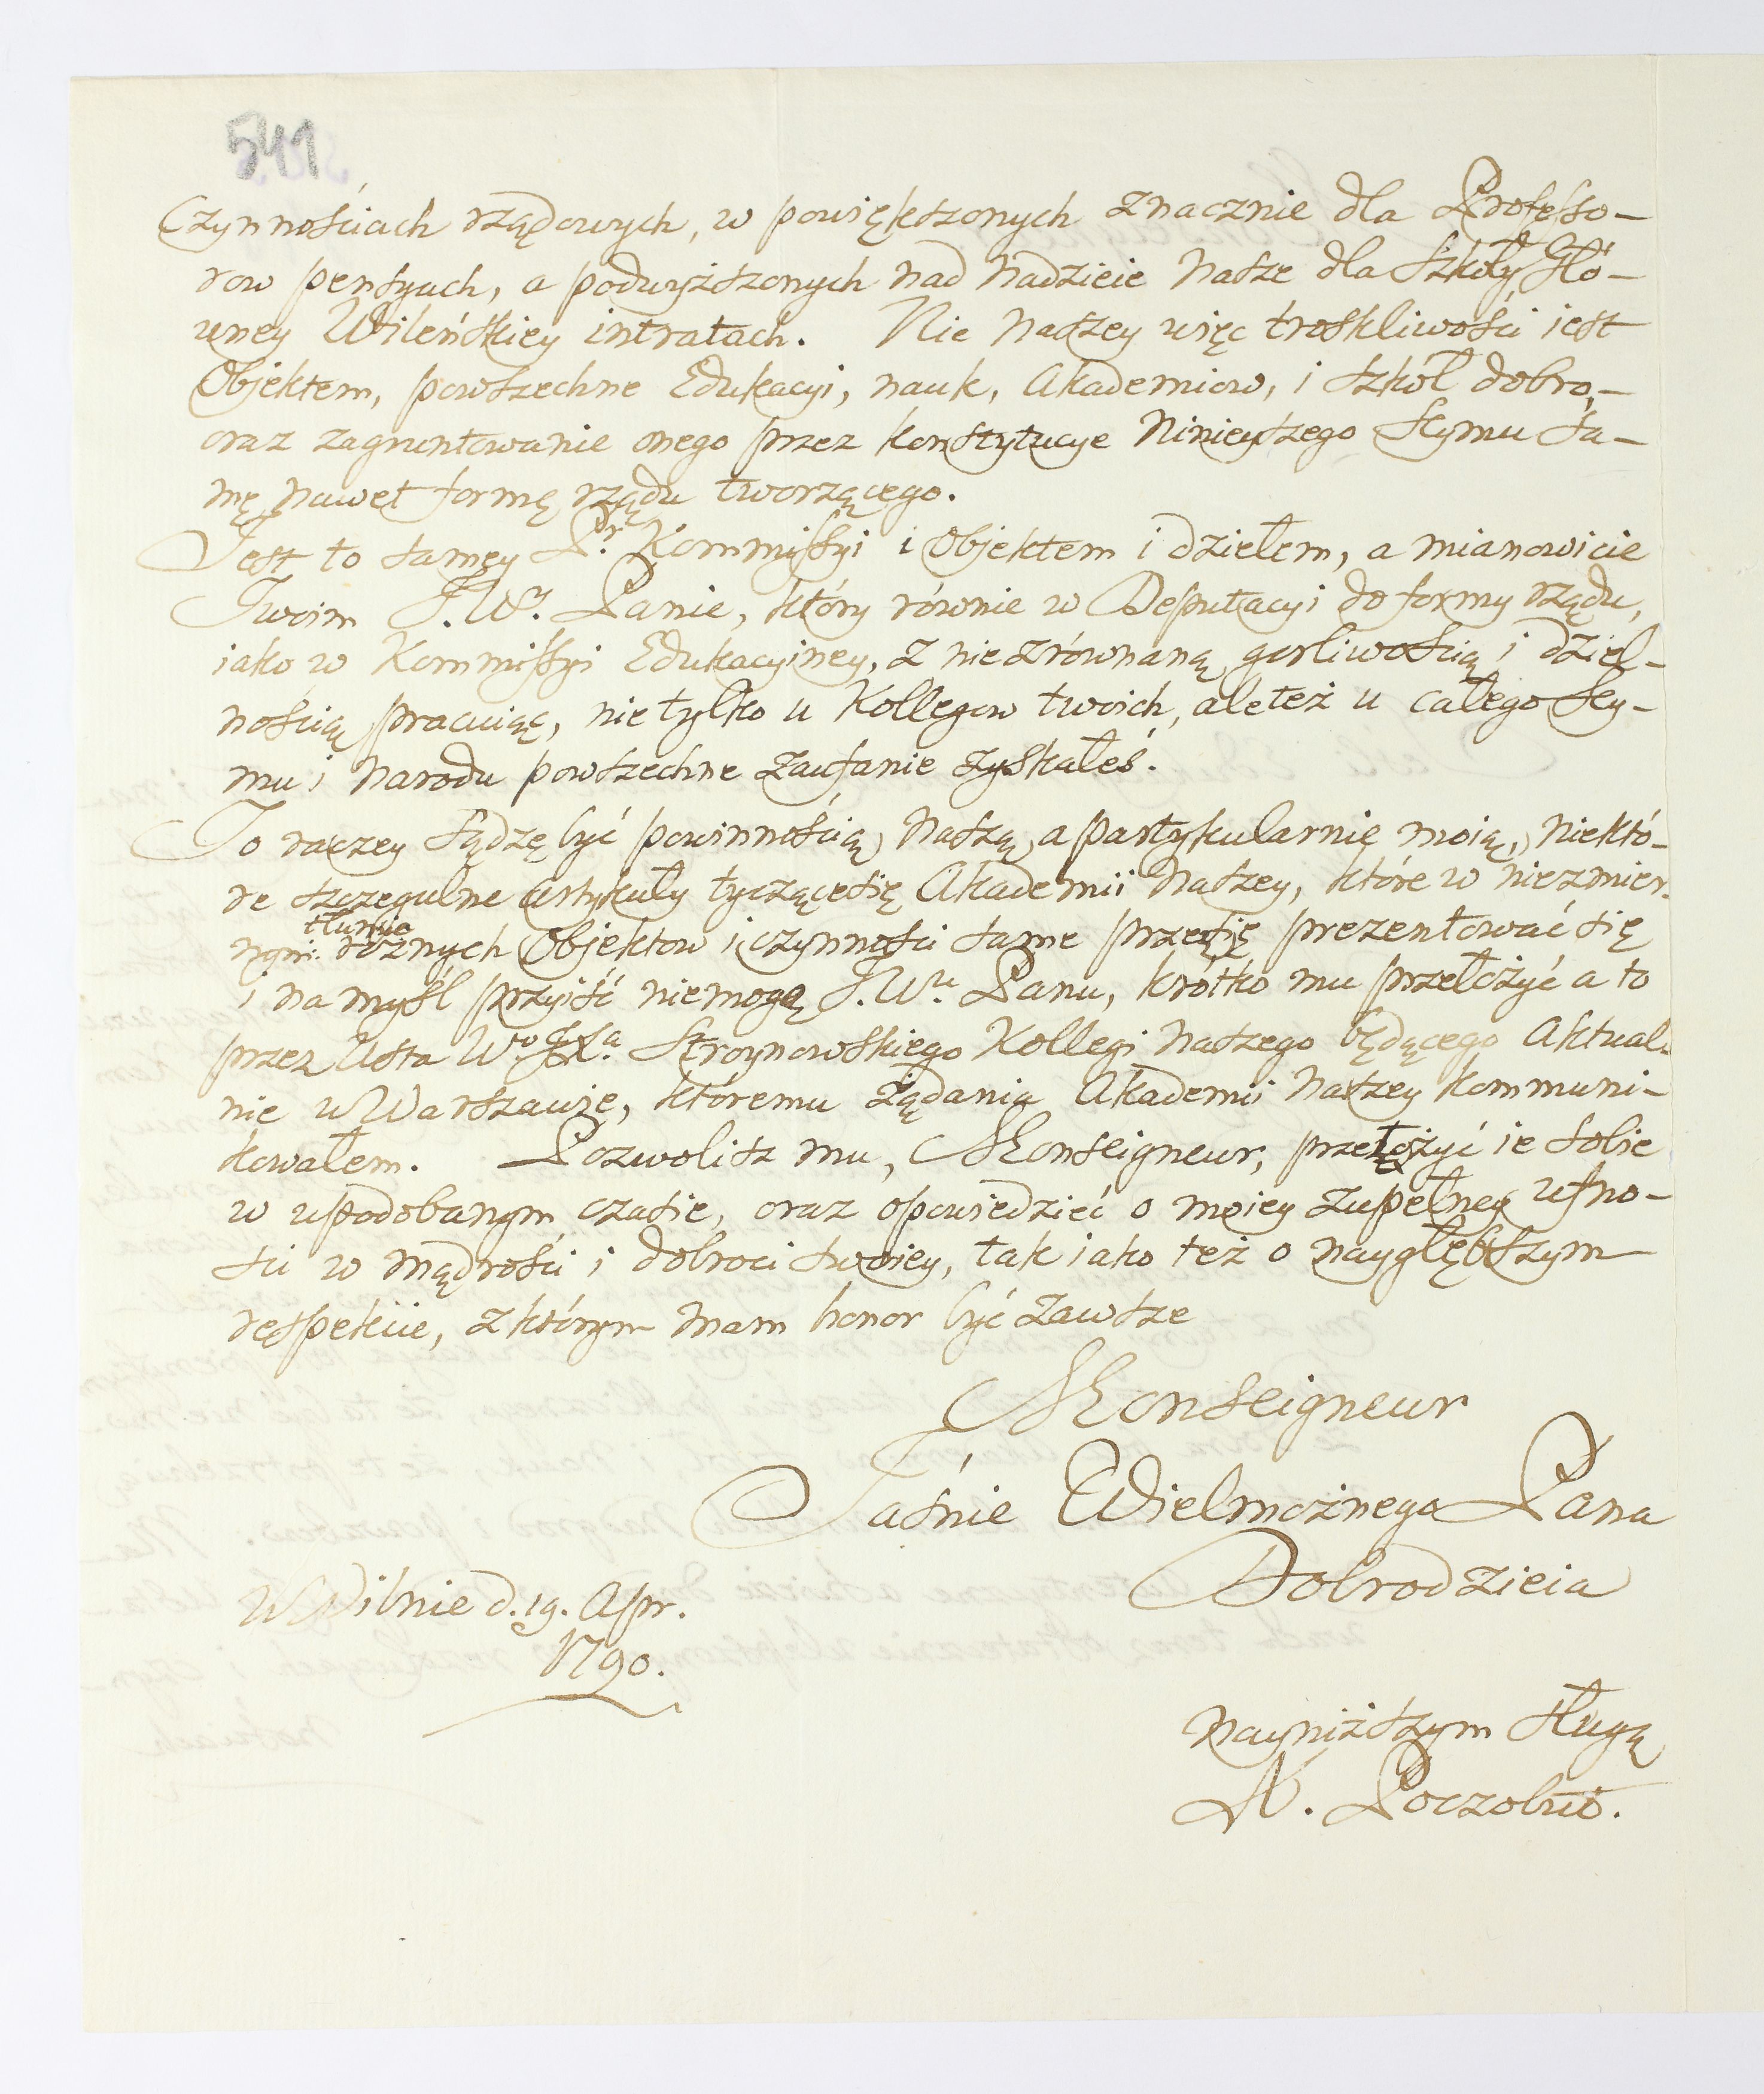 541
Czynnościach rządowych, w powiększonych znacznie dla Professo-
row pensyach, a podwyższonych nad nadzieie nasze dla Szkoły Głó-
wney Wileńskiey intratach. Nie naszey więc troskliwości iest
Objektem, powszechne Edukacyi, nauk, Akademiow, i szkół dobro,-
oraz zagruntowanie onego przez konstytucye Ninieyszego Seymu sa-
mę nawet formę rządu tworzącego.
Jest to samey Pr. Kommissyi i Objektem i dziełem, a mianowicie
Twoim J. W. Panie, który równie w Deputacyi do formy rządu,
iako w Kommissyi Edukacyiney, z niezrównaną gorliwością i dziel-
nością pracuiąc, nie tylko u Kollegow twoich, ale też u całego Sey-
mu i Narodu powszechne zaufanie zyskałeś.
To raczey sądzę być powinnością naszą, a partykularnie moią, niektó-
re szczegulne artykuły tyczącesię Akademii Naszey, które w niezmier-
nym tłumie rożnych Objektow i czynności same przezsię prezentować się
i na myśl przyiść niemogą J. Wu. Panu, krótko mu przełożyć a to
przez Usta Wo. JXa. Stroynowskiego Kollegi naszego będącego Aktual-
nie w Warszawie, któremu żądania Akademii naszey kommuni-
kowałem. Pozwolisz mu, Monseigneur, przełożyć ie sobie
w upodobanym czasie, oraz opowiedzieć o moiey zupełney ufno-
ści w mądrości i dobroci twoiey, tak iako też o naygłębszym
respekcie, z którym mam honor być zawsze
Monseigneur
Jaśnie Wielmożnego Pana
Dobrodzieia
w Wilnie d. 19. Apr.
1790.
nayniższym sługą
M. Poczobut.